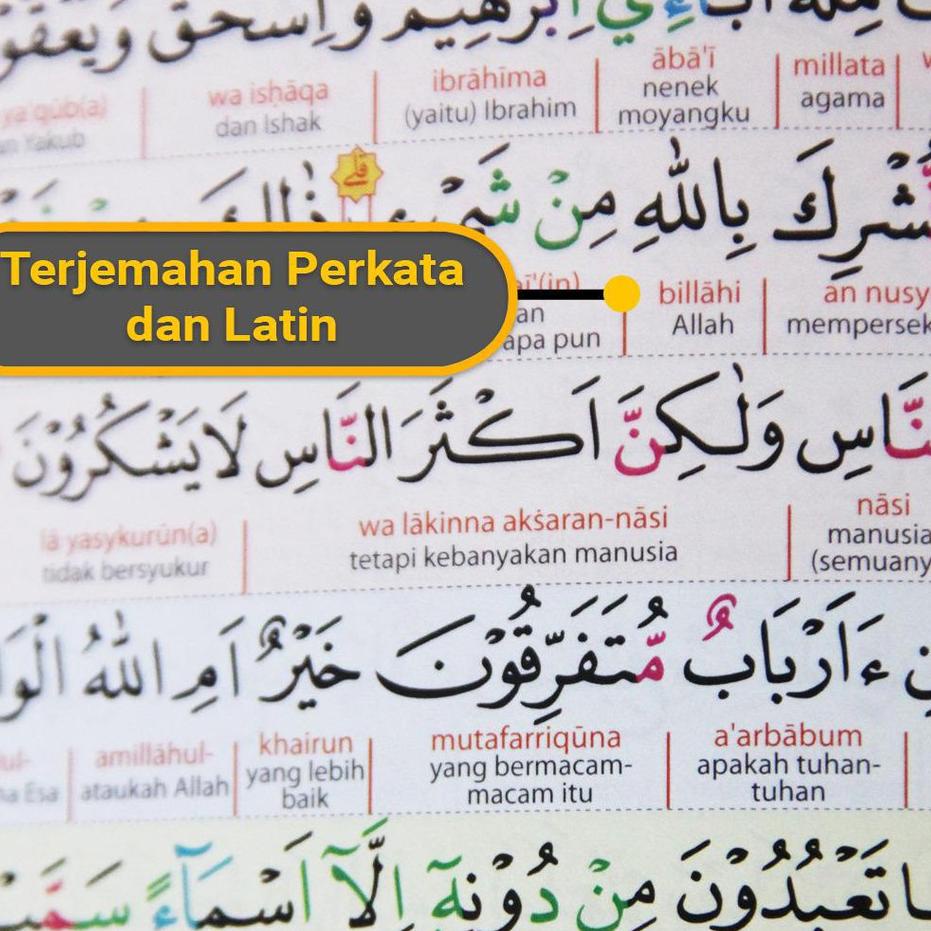 إبرهيم وإسحق
ābā'ī ibrāhīma wa isḥāqa ya'qūb(a)
millata
agama
nenek
moyangku
(yaitu) Ibrahim
dan Ishak
Yakub
بِاللّٰهِ مِنْ شَيْءٍ ۗ ذٰلِكَ
Terjemahan Perkata
dan Latin
an nusy
mempersek
billāhi
Allah
apa pun
وَلٰكِنَّ اَكْثَرَ النَّاسِ لَا يَشْكُرُوْنَ
nāsi
manusia
wa lākinna akṡaran-nāsi
tetapi kebanyakan manusia
lā yasykurūn(a)
tidak bersyukur
ءَاَرْبَابٌ مُّتَفَرِّقُوْنَ خَيْرٌ اَمِ اللّٰهُ
a'arbābum
apakah tuhan-
tuhan
mutafarriqūna
yang bermacam-
macam itu
khairun
yang lebih
baik
amillāhul-
ataukah Allah
Esa
تَعْبُدُوْنَ مِنْ دُوْنِهٖٓ اِلَّآ اَسْمَاۤءً